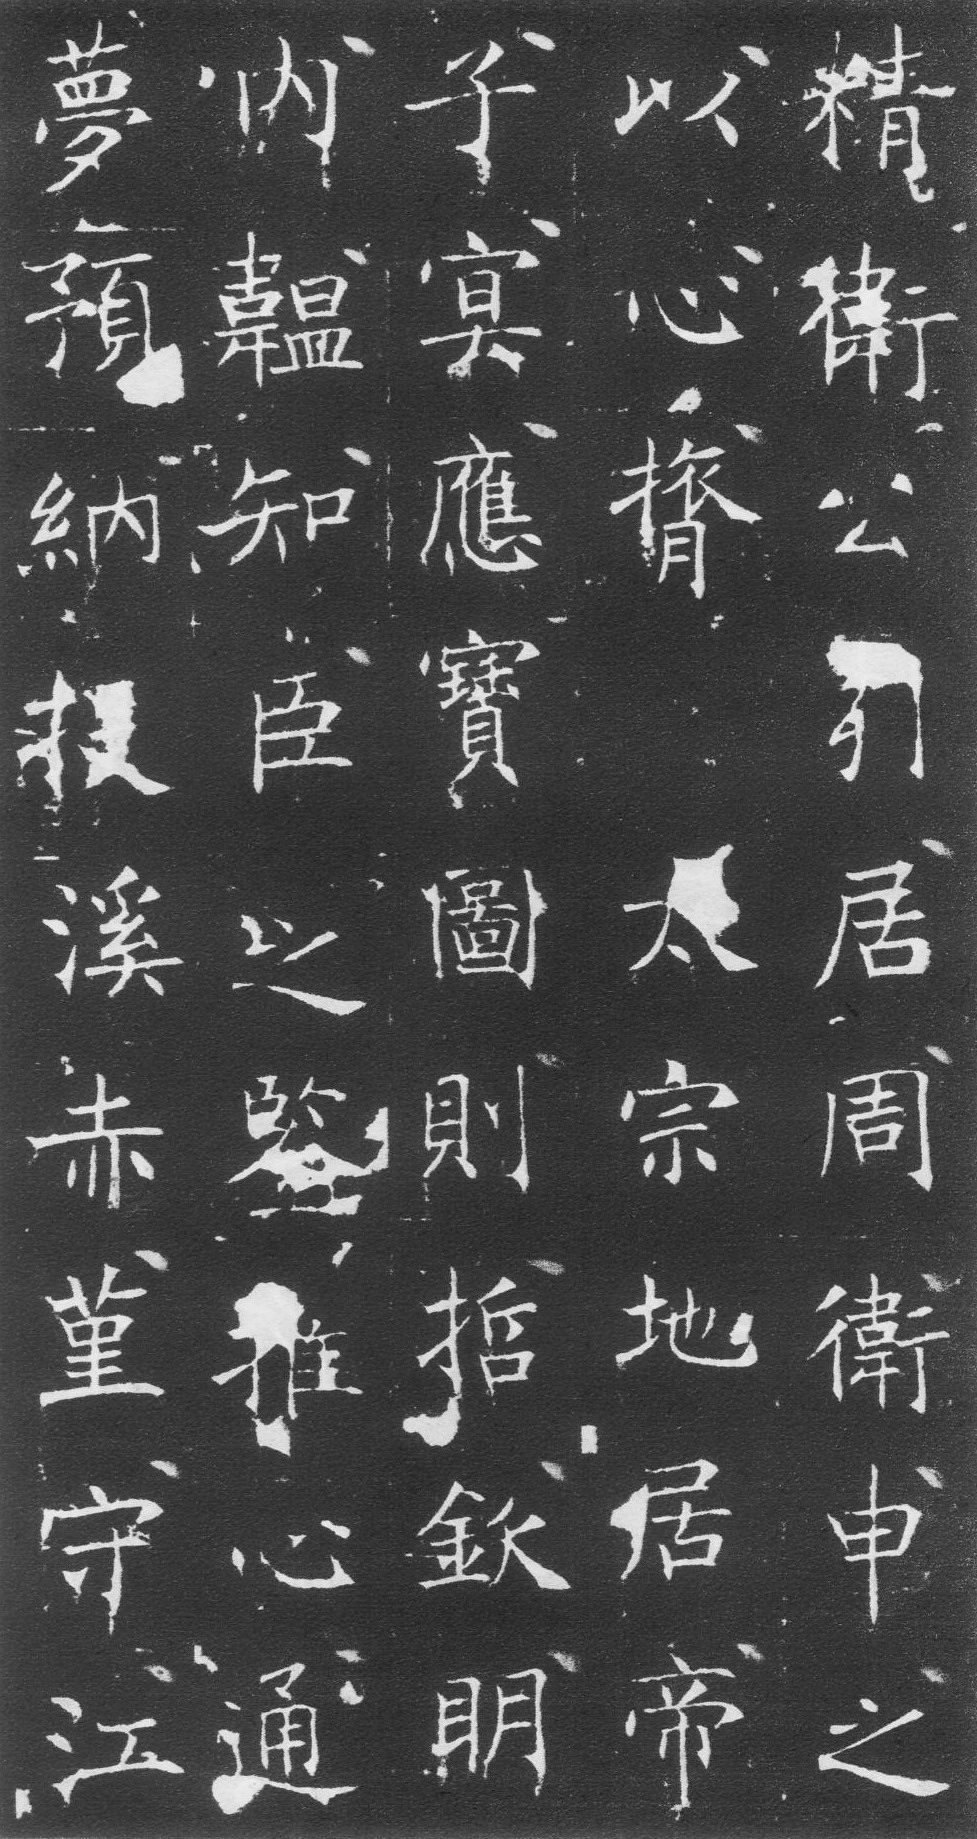 精衛公列居周衛申之
以心膂 太宗地居帝
子冥應寶圖則哲欽明
内韞知臣之鑒推心通
夢預納溪赤堇守江